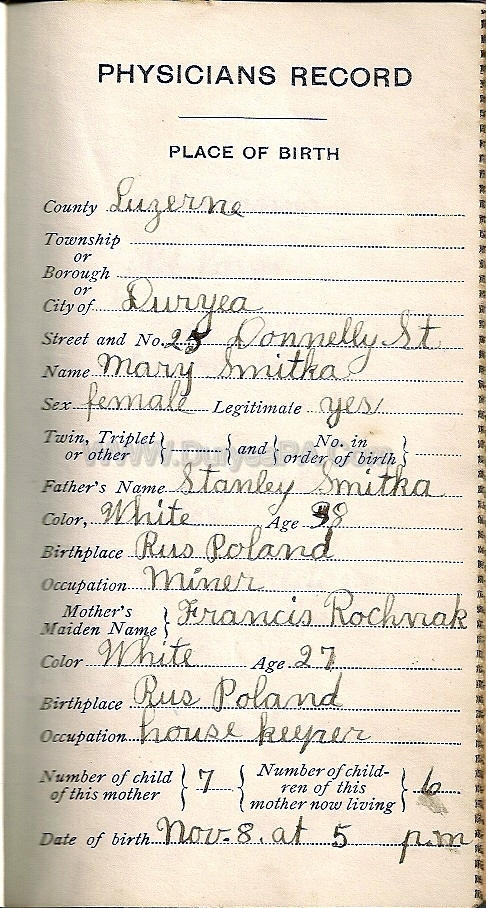 PHYSICIANS RECORD
PLACE OF BIRTH
County Luzerne
Township
or
Borough
or
City of Duryea
Street and No. 25 Donnelly St
Name Mary Smitka
Sex female Legitimate yes
Twin, Triplet or other } { and } No. in order of birth }
Father's Name Stanley Smitka
Color, White Age 38
Birthplace Rus Poland
Occupation Miner
Mother's Maiden Name } Francis Rochnak
Color White Age 27
Birthplace Rus Poland
Occupation house keeper
Number of child of this mother } 7 { Number of child-ren of this mother now living } 6
Date of birth Nov. 8. at 5 p.m